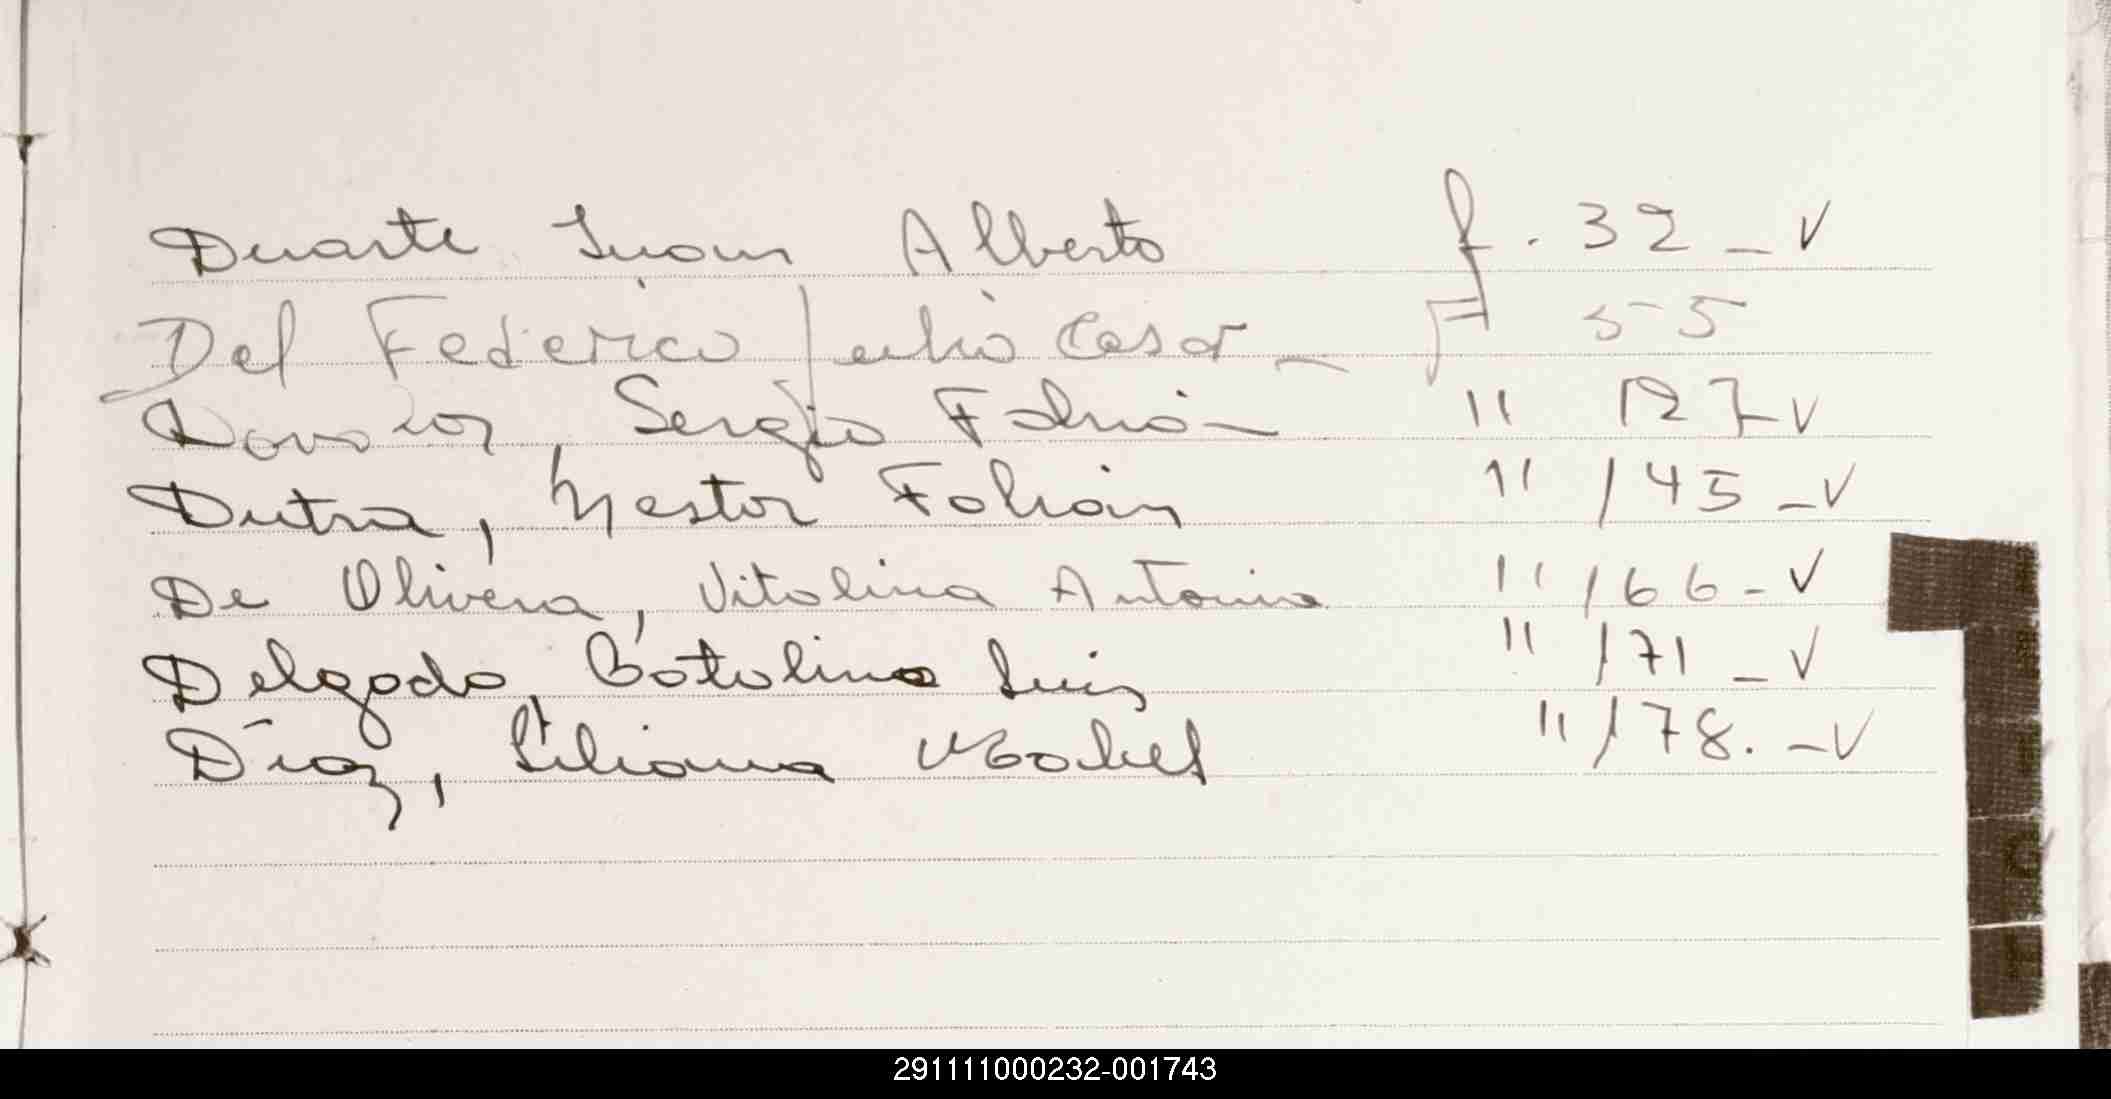 Duarte Juan Alberto f. 32 _ V
Del Federico Julio Cesar _ F 55
Sergio Fabián " 127_V
Dutra, Nestor Fabián " 145 _ V
De Olivera, Vitalina Antonia " 166 - V
Delgado, Catalino Luis " 171 _ V
Díaz, Liliana Mabel " 178. _ V
291111000232-001743